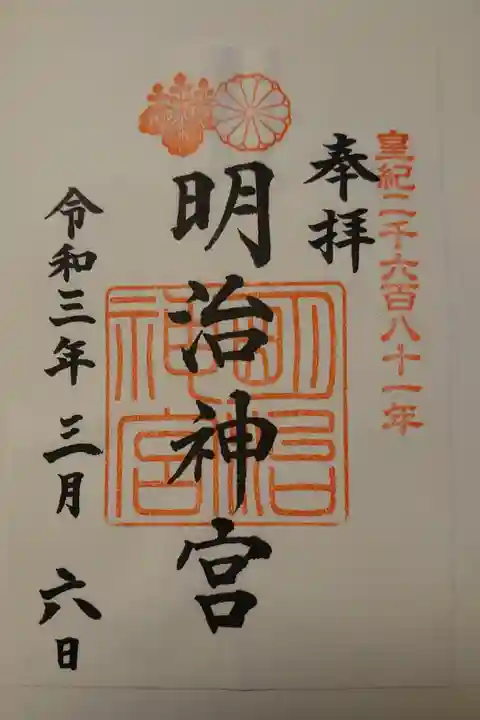 皇紀二千六百八十一年
奉拝
明治神宮
明治神宮
令和三年三月六日